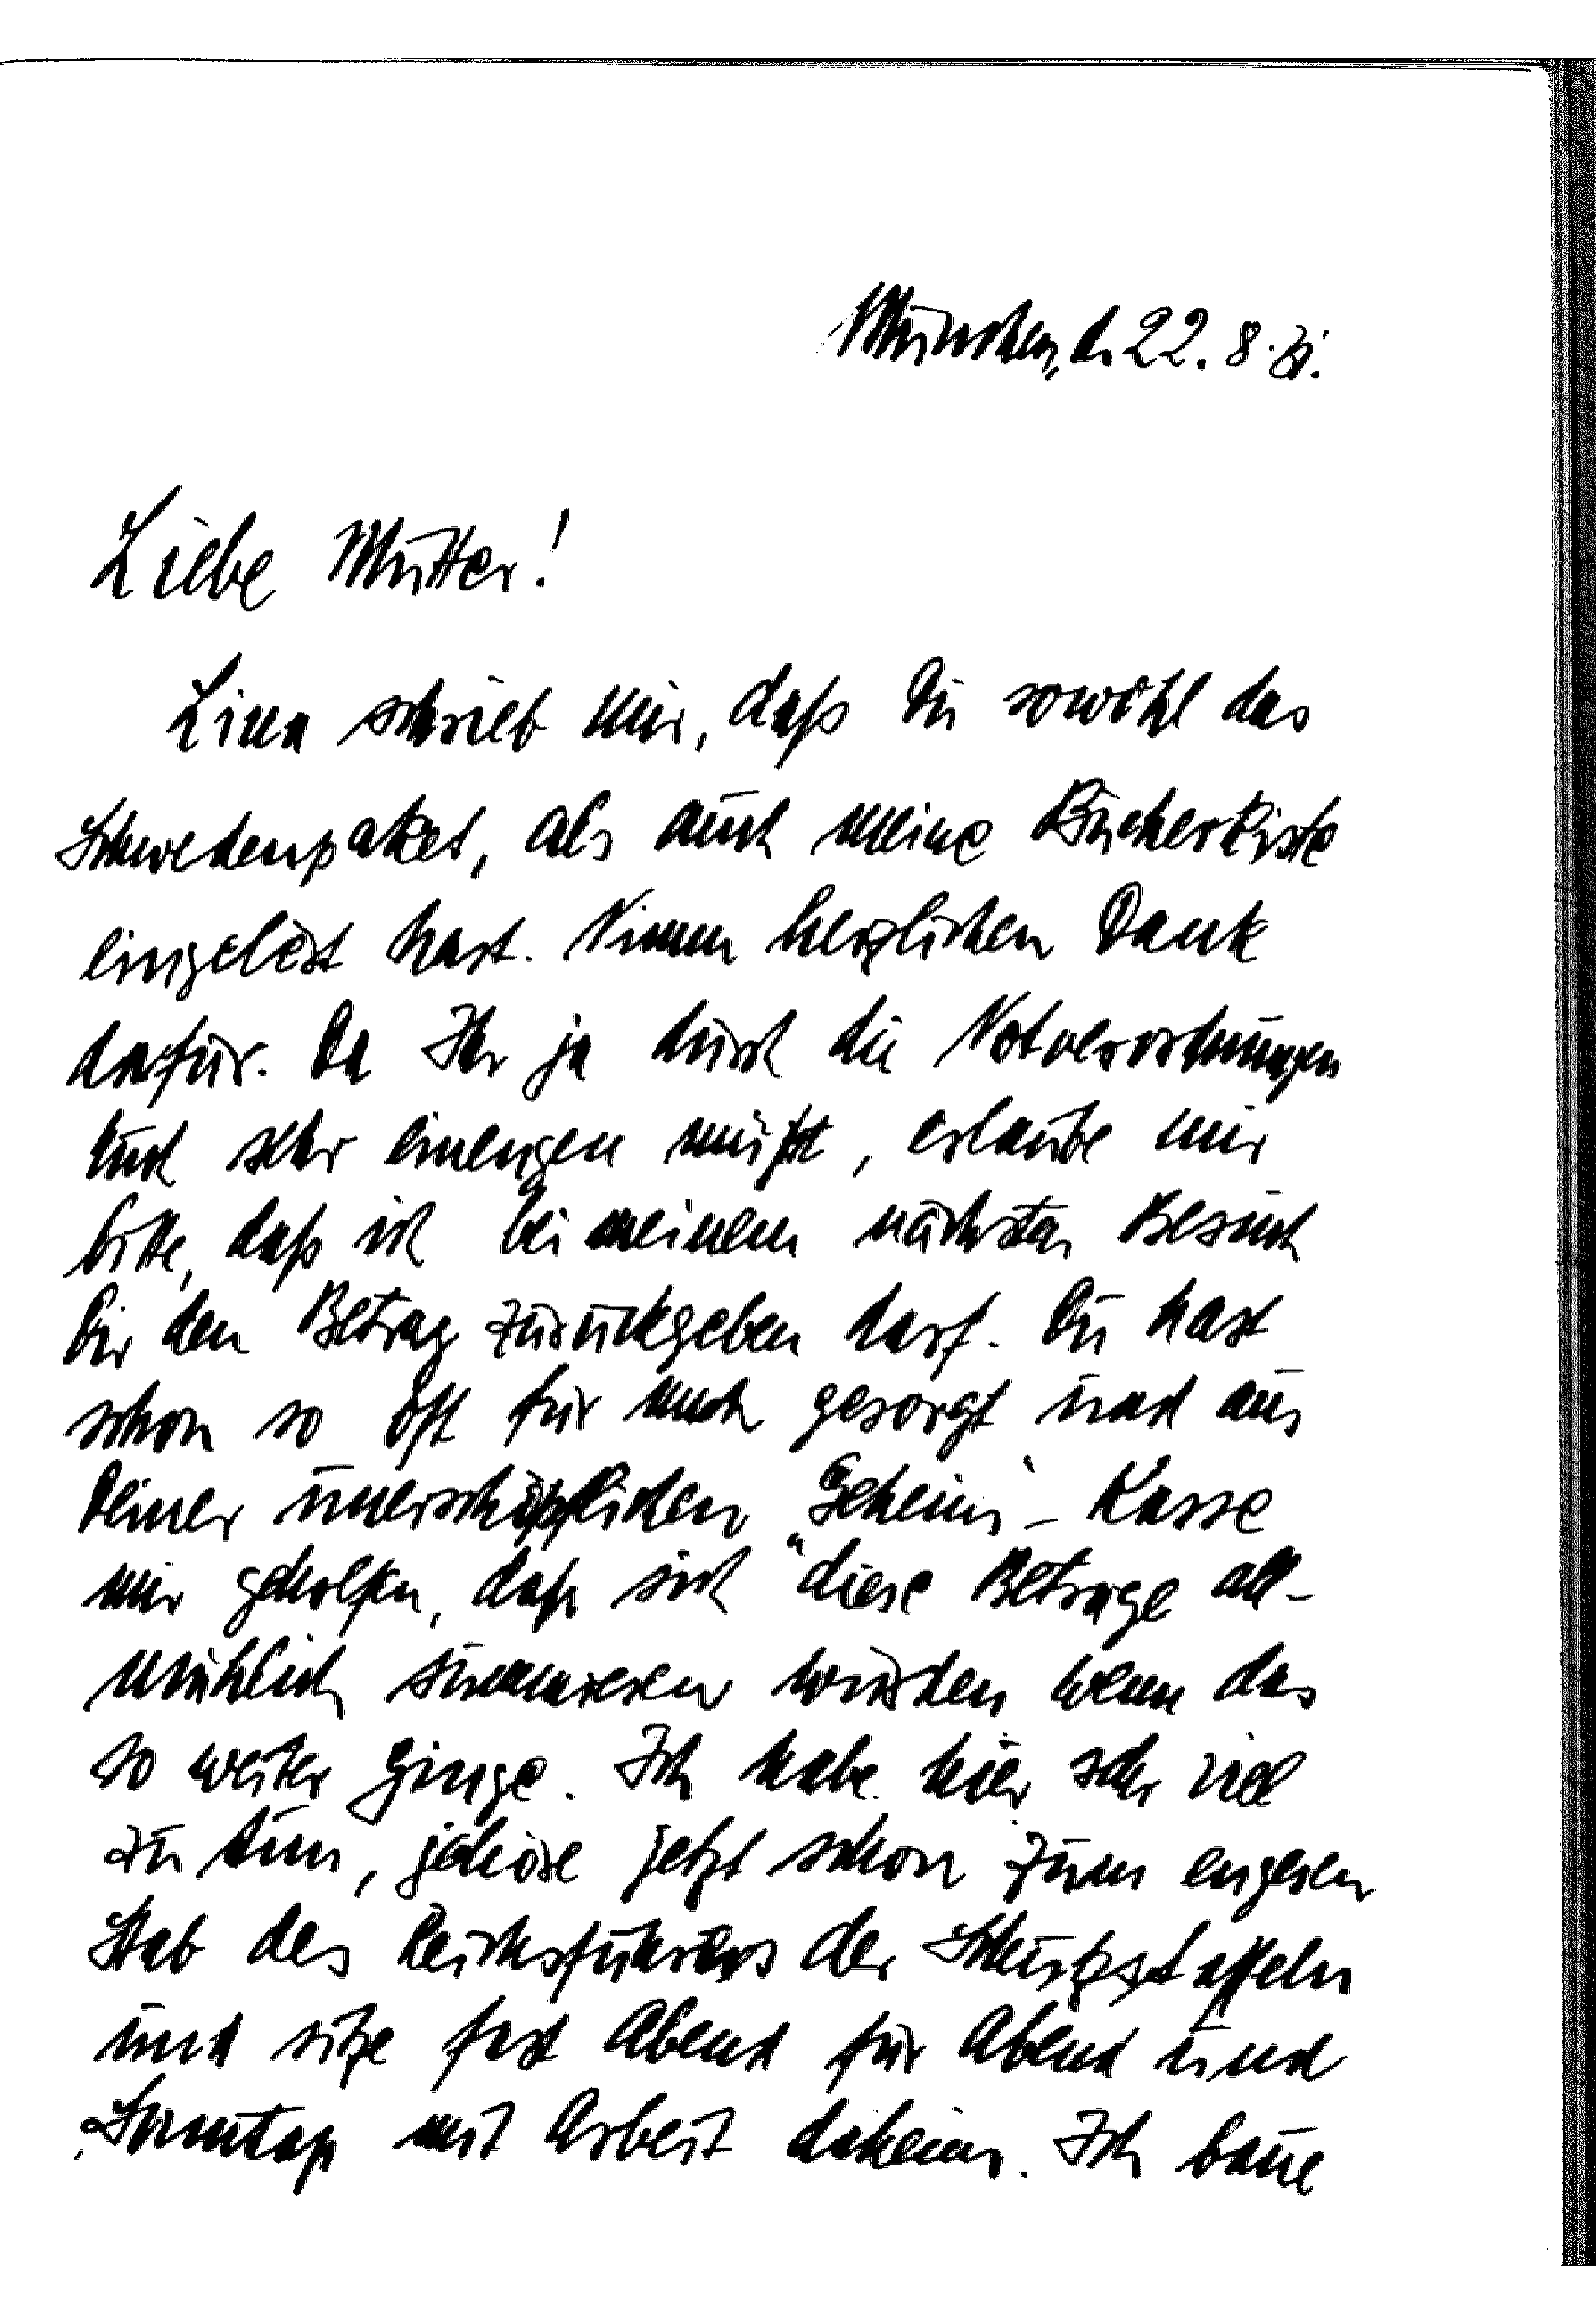 München, d. 22. 8. 31.
Liebe Mutter!
Lina schrieb mir, daß Du sowohl das
Schwedenpaket, als auch meine Bücherkiste
eingelöst hast. Nimm herzlichen Dank
dafür. Da Ihr ja durch die Notverordnungen
Euch sehr einengen müßt, erlaube mir
bitte, daß ich bei meinem nächsten Besuch
Dir den Betrag zurückgeben darf. Du hast
schon so oft für mich gesorgt und aus
Deiner unerschöpflichen „Geheim"-Kasse
mir geholfen, daß sich diese Beträge all-
mählich summieren würden wenn das
so weiter ginge. Ich habe hier sehr viel
zu tun, gehöre jetzt schon zum engeren
Stab des Reichsführers der Schutzstaffeln
und sitze fast Abend für Abend und
Sonntag mit Arbeit daheim. Ich baue